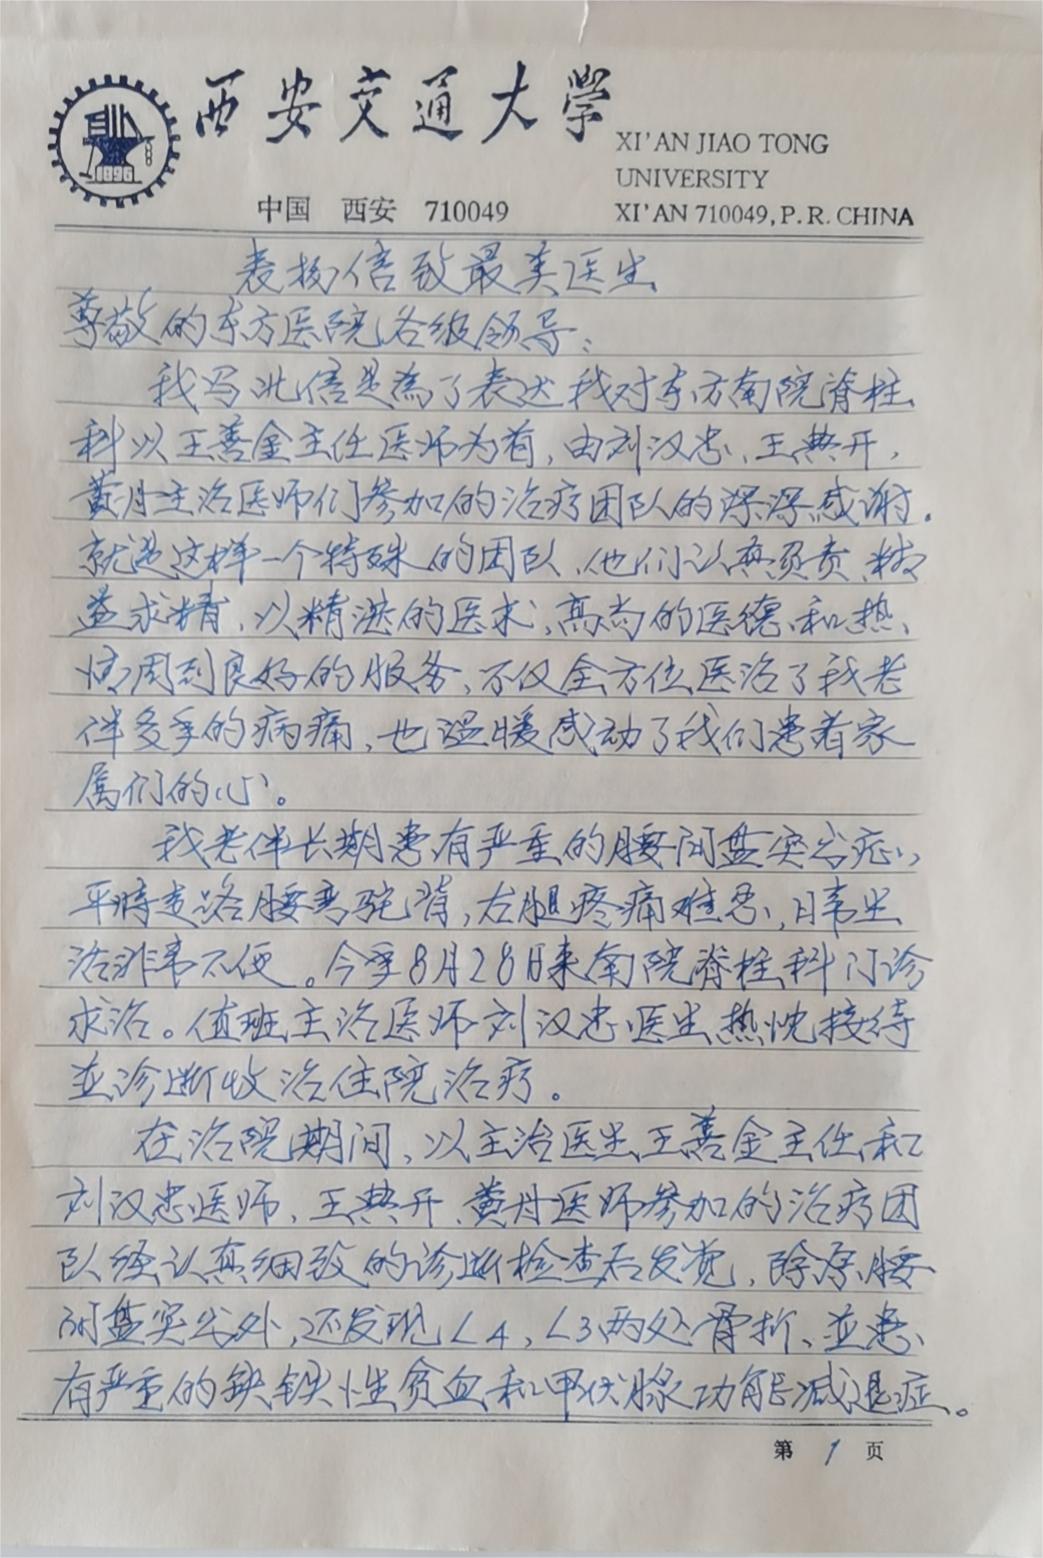 西安交通大学
XI'AN JIAO TONG
UNIVERSITY
中国 西安 710049
XI'AN 710049, P. R. CHINA
1896
表扬信致最美医生
尊敬的东方医院各级领导：
我写此信是為了表达我对东方南院脊柱
科以王善金主任医师为首，由刘汉忠、王典开，
黄丹主治医师们参加的治疗团队的深深感谢。
就是这样一个特殊的团队、他们认真负责、精
益求精，以精湛的医术、高尚的医德和热
情周到良好的服务、不仅全方位医治了我老
伴多年的病痛，也温暖感动了我们患者家
属们的心。
我老伴长期患有严重的腰间盘突出症，
平時走路腰弯驼背，右腿疼痛难忍，日常生
活非常不便。今年8月28日来南院脊柱科门诊
求治。值班主治医师刘汉忠医生热忱接待
並诊断收治住院治疗。
在治院期间，以主治医生王善金主任和
刘汉忠医师、王典开、黄丹医师参加的治疗团
队经认真细致的诊断检查后发觉，除原腰
间盘突出外，还发现L4，L3两处骨折、並患
有严重的缺铁性贫血和甲状腺功能减退症。
第 1 页